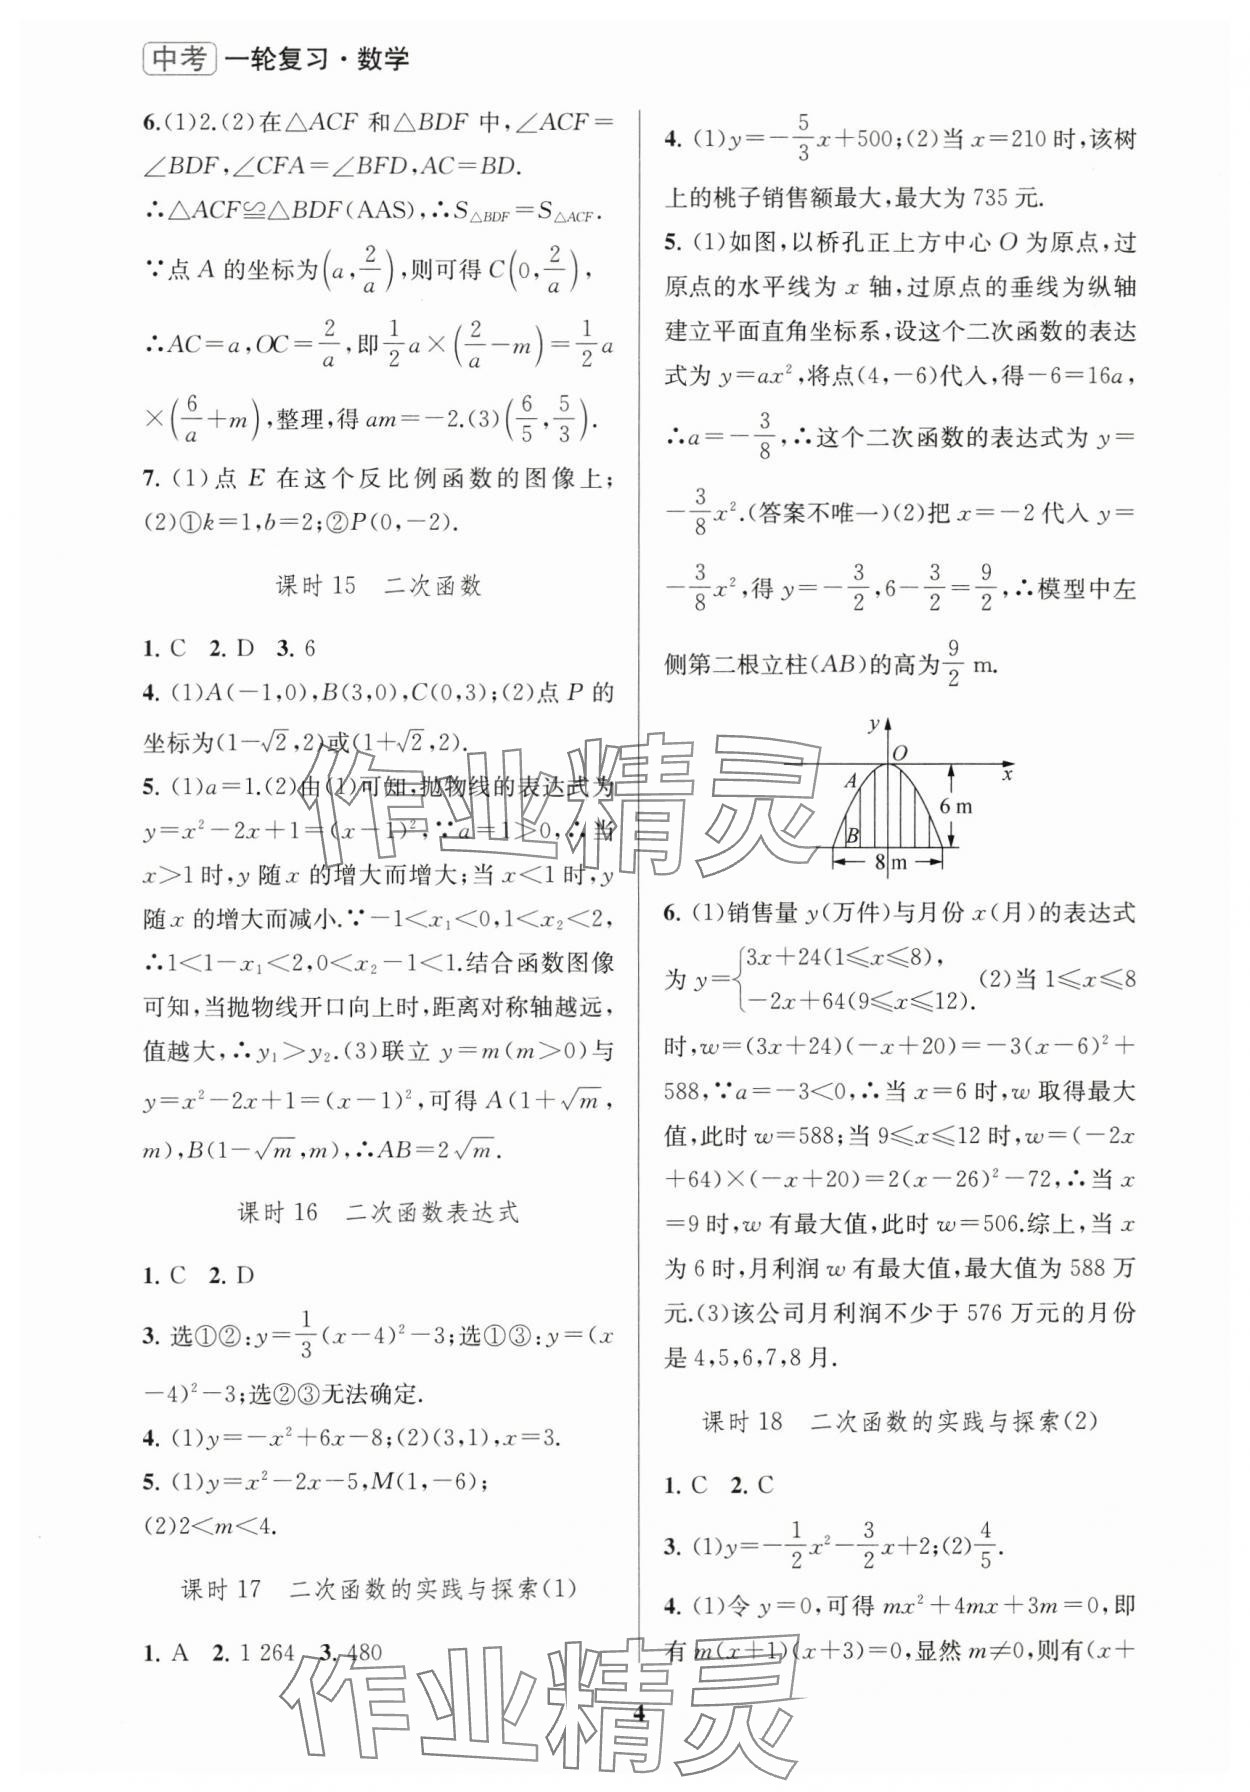 中考 一轮复习·数学
6.(1)2.(2)在△ACF 和△BDF 中,∠ACF=
∠BDF,∠CFA=∠BFD,AC=BD.
∴△ACF≌△BDF(AAS),∴S△BDF=S△ACF.
∵点 A 的坐标为(a,2/a),则可得 C(0,2/a),
∴AC=a,OC=2/a,即1/2a×(2/a-m)=1/2a
×(6/a+m),整理,得 am=-2.(3)(6/5,5/3).
7.(1)点 E 在这个反比例函数的图像上;
(2)①k=1,b=2;②P(0,-2).
课时 15 二次函数
1. C 2. D 3. 6
4. (1)A(-1,0),B(3,0),C(0,3);(2)点 P 的
坐标为(1-√2,2)或(1+√2,2).
5. (1)a=1.(2)由(1)可知,抛物线的表达式为
y=x²-2x+1=(x-1)²,∵a=1>0,∴当
x>1时,y 随 x 的增大而增大;当 x<1时,y
随 x 的增大而减小.∵-1<x₁<0,1<x₂<2,
∴1<1-x₁<2,0<x₂-1<1.结合函数图像
可知,当抛物线开口向上时,距离对称轴越远,
值越大,∴y₁>y₂.(3)联立 y=m(m>0)与
y=x²-2x+1=(x-1)²,可得 A(1+√m,
m),B(1-√m,m),∴AB=2√m.
课时 16 二次函数表达式
1. C 2. D
3. 选①②:y=1/3(x-4)²-3;选①③:y=(x
-4)²-3;选②③无法确定.
4. (1)y=-x²+6x-8;(2)(3,1),x=3.
5. (1)y=x²-2x-5,M(1,-6);
(2)2<m<4.
课时 17 二次函数的实践与探索(1)
1. A 2. 1 264 3. 480
4. (1)y=-5/3x+500;(2)当 x=210 时,该树
上的桃子销售额最大,最大为 735 元.
5. (1)如图,以桥孔正上方中心 O 为原点,过
原点的水平线为 x 轴,过原点的垂线为纵轴
建立平面直角坐标系,设这个二次函数的表达
式为 y=ax²,将点(4,-6)代入,得-6=16a,
∴a=-3/8,∴这个二次函数的表达式为 y=
-3/8x².(答案不唯一)(2)把 x=-2代入 y=
-3/8x²,得 y=-3/2,6-3/2=9/2,∴模型中左
侧第二根立柱(AB)的高为9/2 m.
y
O
x
A
B
6 m
8 m
6. (1)销售量 y(万件)与月份 x(月)的表达式
为 y={3x+24(1≤x≤8),
-2x+64(9≤x≤12). (2)当 1≤x≤8
时,w=(3x+24)(-x+20)=-3(x-6)²+
588,∵a=-3<0,∴当 x=6 时,w 取得最大
值,此时 w=588;当 9≤x≤12 时,w=(-2x
+64)×(-x+20)=2(x-26)²-72,∴当 x
=9 时,w 有最大值,此时 w=506.综上,当 x
为 6 时,月利润 w 有最大值,最大值为 588 万
元.(3)该公司月利润不少于 576 万元的月份
是 4,5,6,7,8 月.
课时 18 二次函数的实践与探索(2)
1. C 2. C
3. (1)y=-1/2x²-3/2x+2;(2)4/5.
4. (1)令 y=0,可得 mx²+4mx+3m=0,即
有 m(x+1)(x+3)=0,显然 m≠0,则有(x+
4
作业精灵
作业精灵